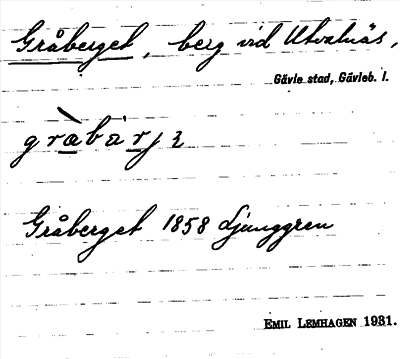 Gråberget, berg vid Utvalnäs,
Gävle stad, Gävleb. l.
Gråberget 1858 Ljunggren
EMIL LEMHAGEN 1931.